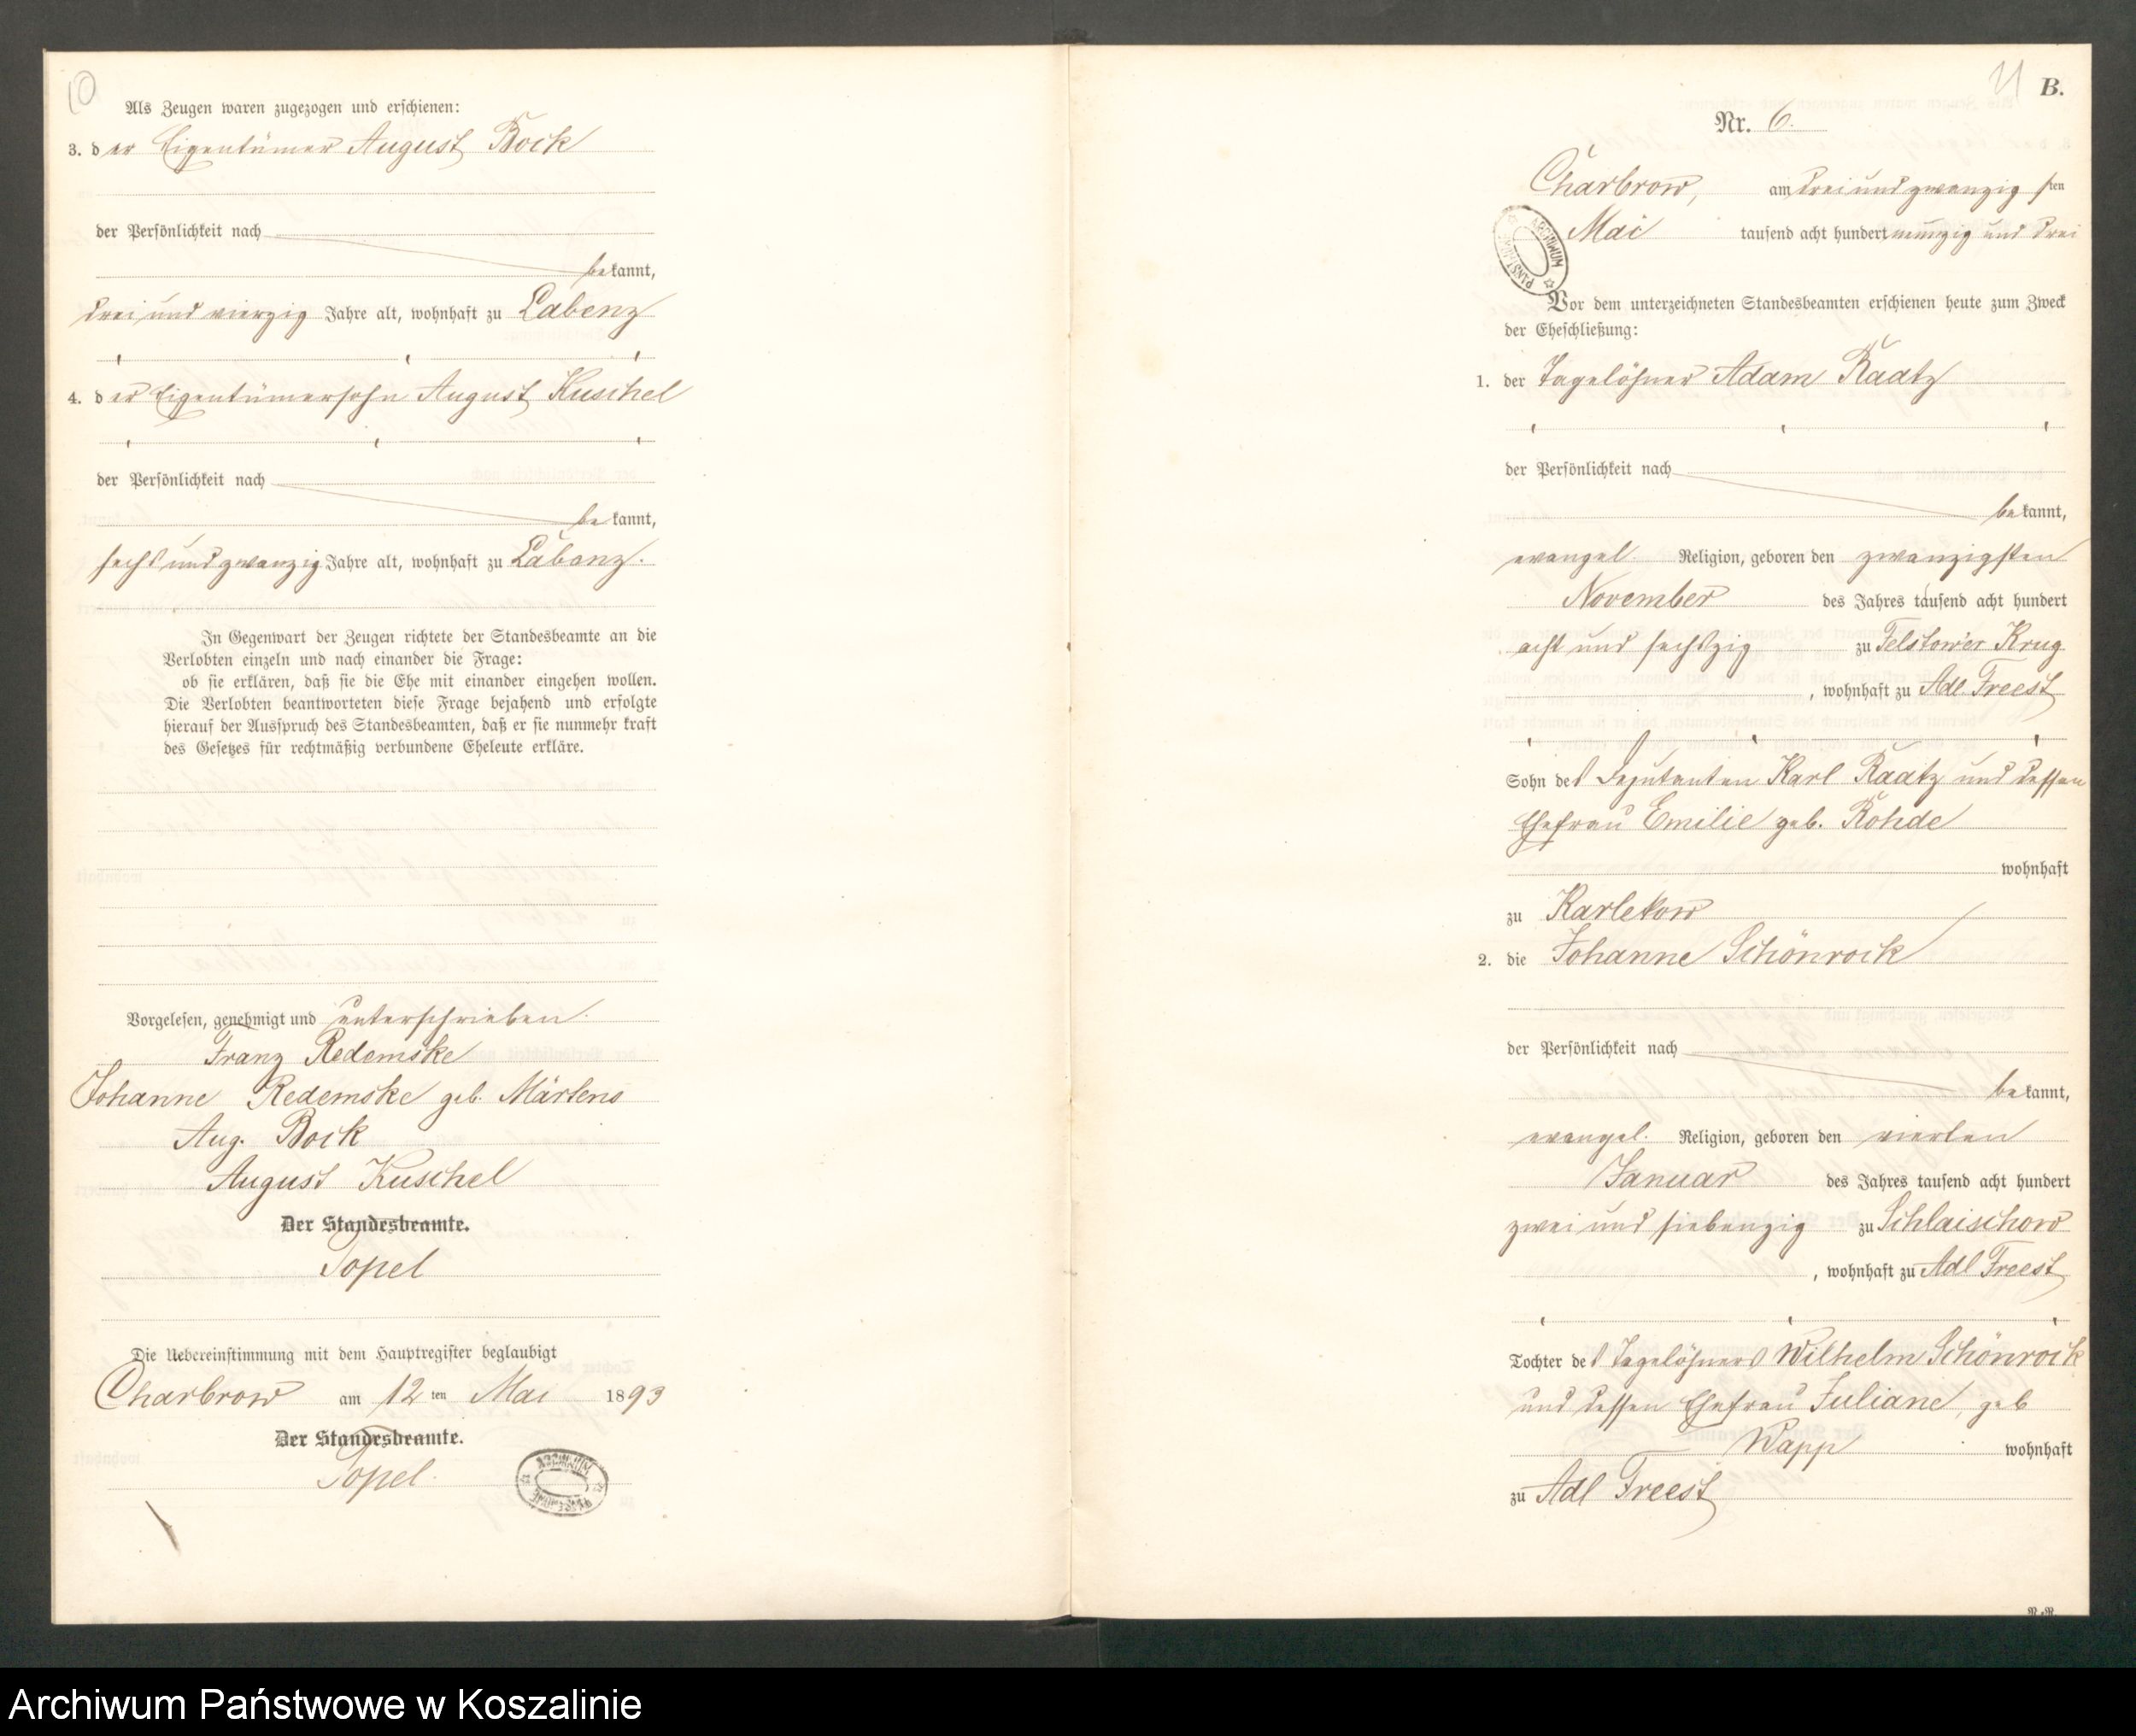 10
Als Zeugen waren zugezogen und erschienen:
3. der Eigentümer August Bock
der Persönlichkeit nach
bekannt,
drei und vierzig Jahre alt, wohnhaft zu Labenz
4. der Eigentümersohn August Kuschel
der Persönlichkeit nach
bekannt,
sechs und zwanzig Jahre alt, wohnhaft zu Labenz.
In Gegenwart der Zeugen richtete der Standesbeamte an die
Verlobten einzeln und nach einander die Frage:
ob sie erklären, daß sie die Ehe mit einander eingehen wollen.
Die Verlobten beantworteten diese Frage bejahend und erfolgte
hierauf der Ausspruch des Standesbeamten, daß er sie nunmehr kraft
des Gesetzes für rechtmäßig verbundene Eheleute erkläre.
Vorgelesen, genehmigt und unterschrieben.
Franz Redemske
Johanne Redemske geb. Märtens
Aug. Bock
August Kuschel
Der Standesbeamte.
Topel
Die Uebereinstimmung mit dem Hauptregister beglaubigt
Charbrow am 12ten Mai 1893
Der Standesbeamte.
Topel.
ARCHIWUM PAŃSTWOWE
11
B.
Nr. 6.
Charbrow, am drei und zwanzigsten
Mai tausend acht hundert neunzig und drei
ARCHIWUM PAŃSTWOWE
Vor dem unterzeichneten Standesbeamten erschienen heute zum Zweck
der Eheschließung:
1. der Tagelöhner Adam Raatz
der Persönlichkeit nach
bekannt,
evangel. Religion, geboren den zwanzigsten
November des Jahres tausend acht hundert
acht und sechszig zu Felstower Krug
, wohnhaft zu Adl. Freest
Sohn des Deputanten Karl Raatz und dessen
Ehefrau Emilie geb. Rohde
wohnhaft
zu Karlekow
2. die Johanne Schönrock
der Persönlichkeit nach
bekannt,
evangel. Religion, geboren den vierten
Januar des Jahres tausend acht hundert
zwei und siebenzig zu Schlaischow
, wohnhaft zu Adl Freest
Tochter des Tagelöhners Wilhelm Schönrock
und dessen Ehefrau Juliane, geb
Wapp wohnhaft
zu Adl Freest
Archiwum Państwowe w Koszalinie